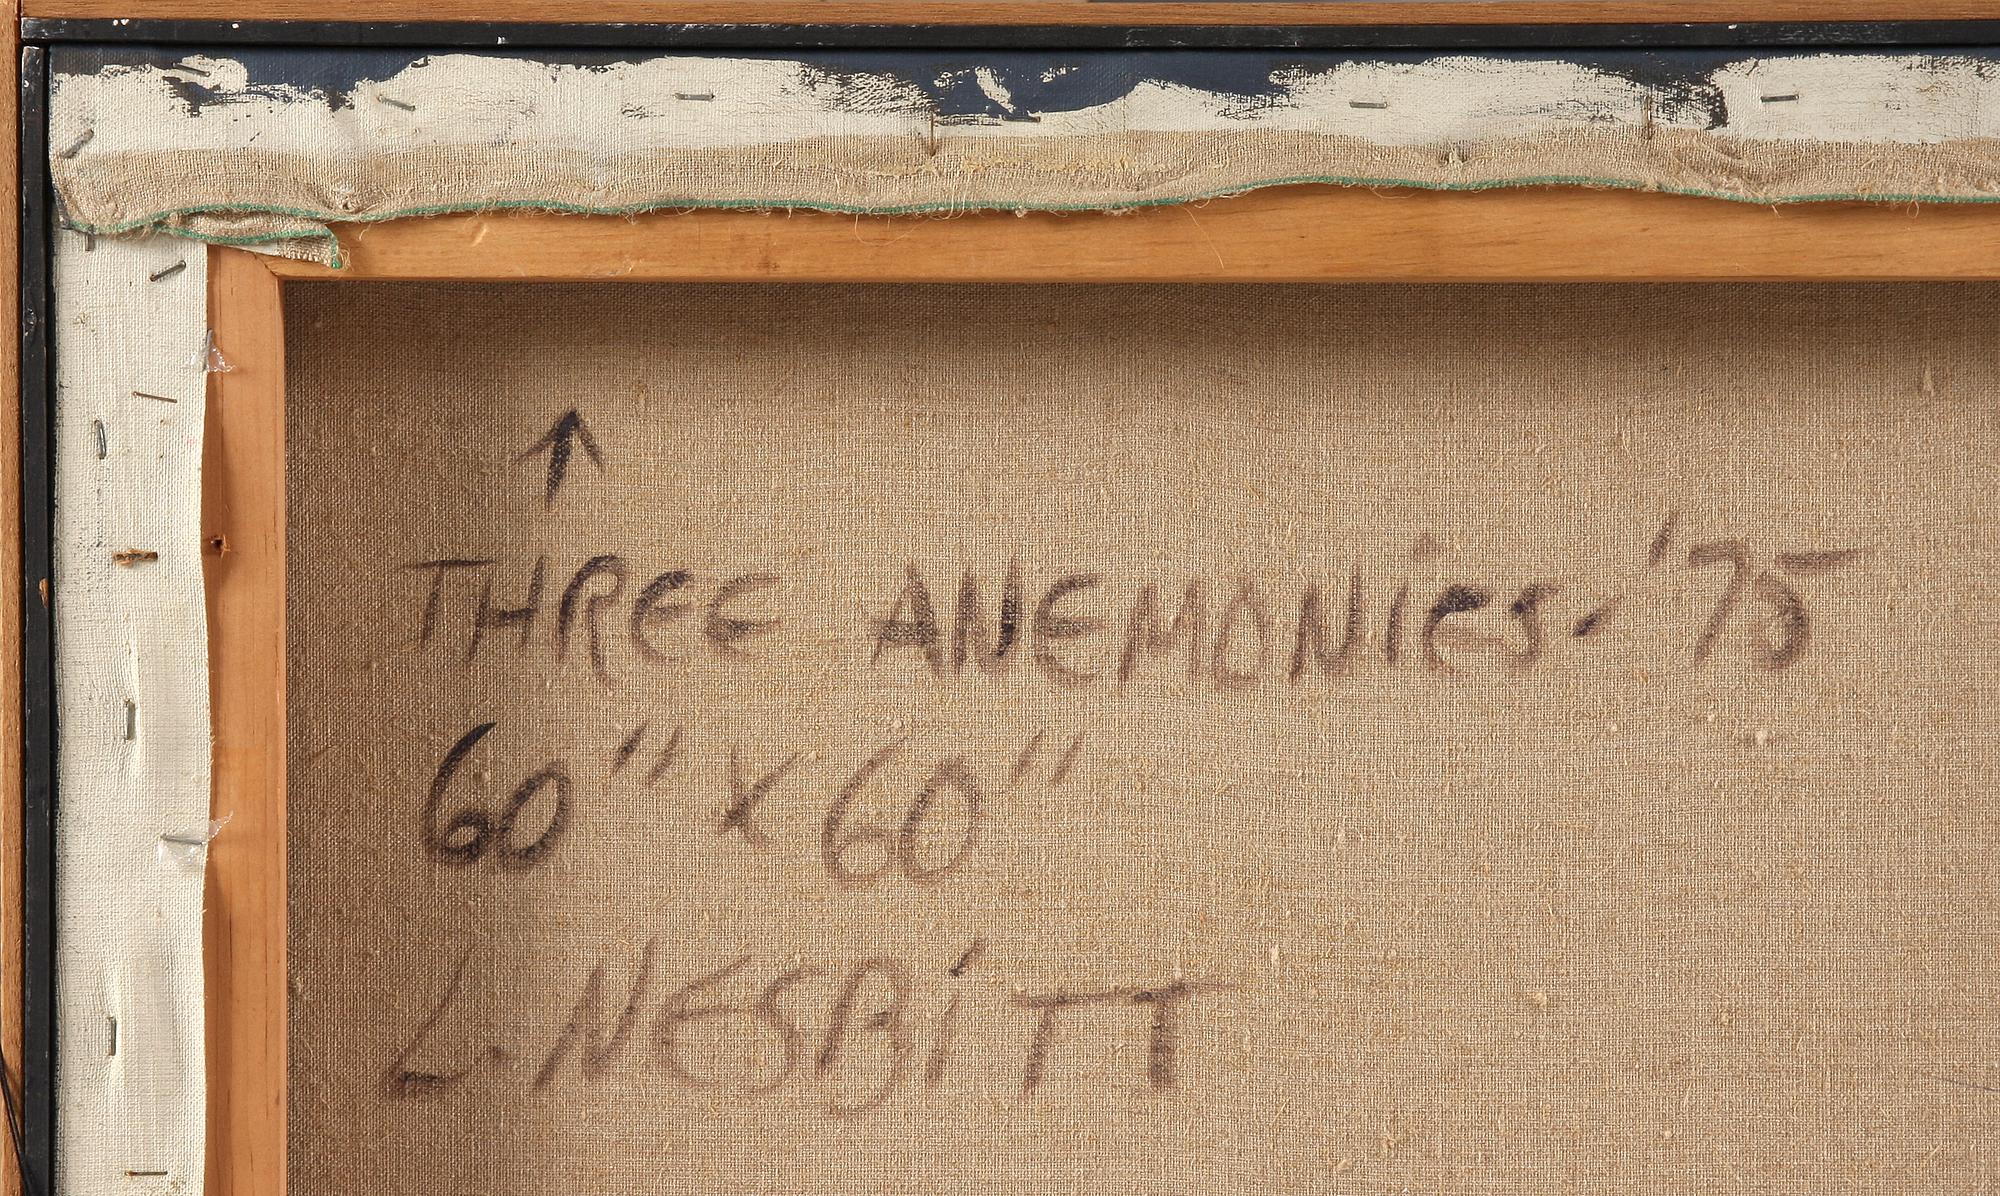 ↑
THREE ANEMONies. '75
60" x 60"
L. NESBiTT